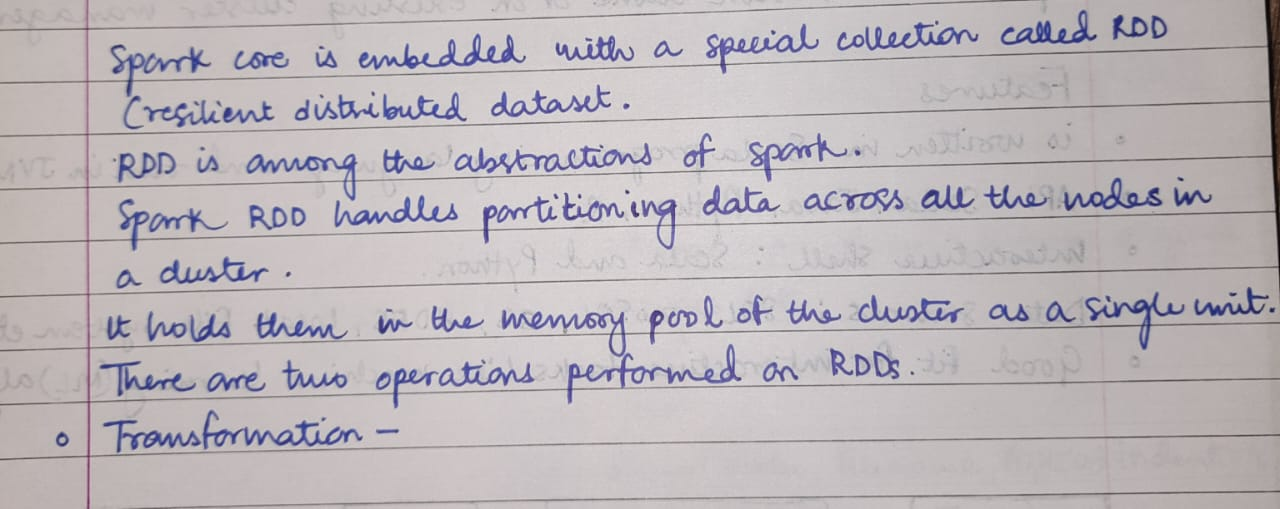 Spark core is embedded with a special collection called RDD
(resilient distributed dataset.
RDD is among the abstractions of spark.
Spark RDD handles partitioning data across all the nodes in
a cluster.
It holds them in the memory pool of the cluster as a single unit.
There are two operations performed on RDDs.
o Transformation -